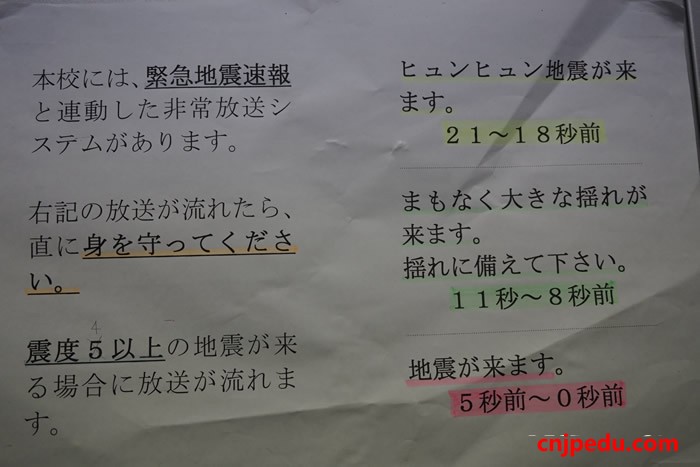 本校には、緊急地震速報
と連動した非常放送シ
ステムがあります。
右記の放送が流れたら、
直に身を守ってくださ
い。
4
震度5以上の地震が来
る場合に放送が流れま
す。
ヒュンヒュン地震が来
ます。
21～18秒前
まもなく大きな揺れが
来ます。
揺れに備えて下さい。
11秒～8秒前
地震が来ます。
5秒前～0秒前
cnjpedu.com